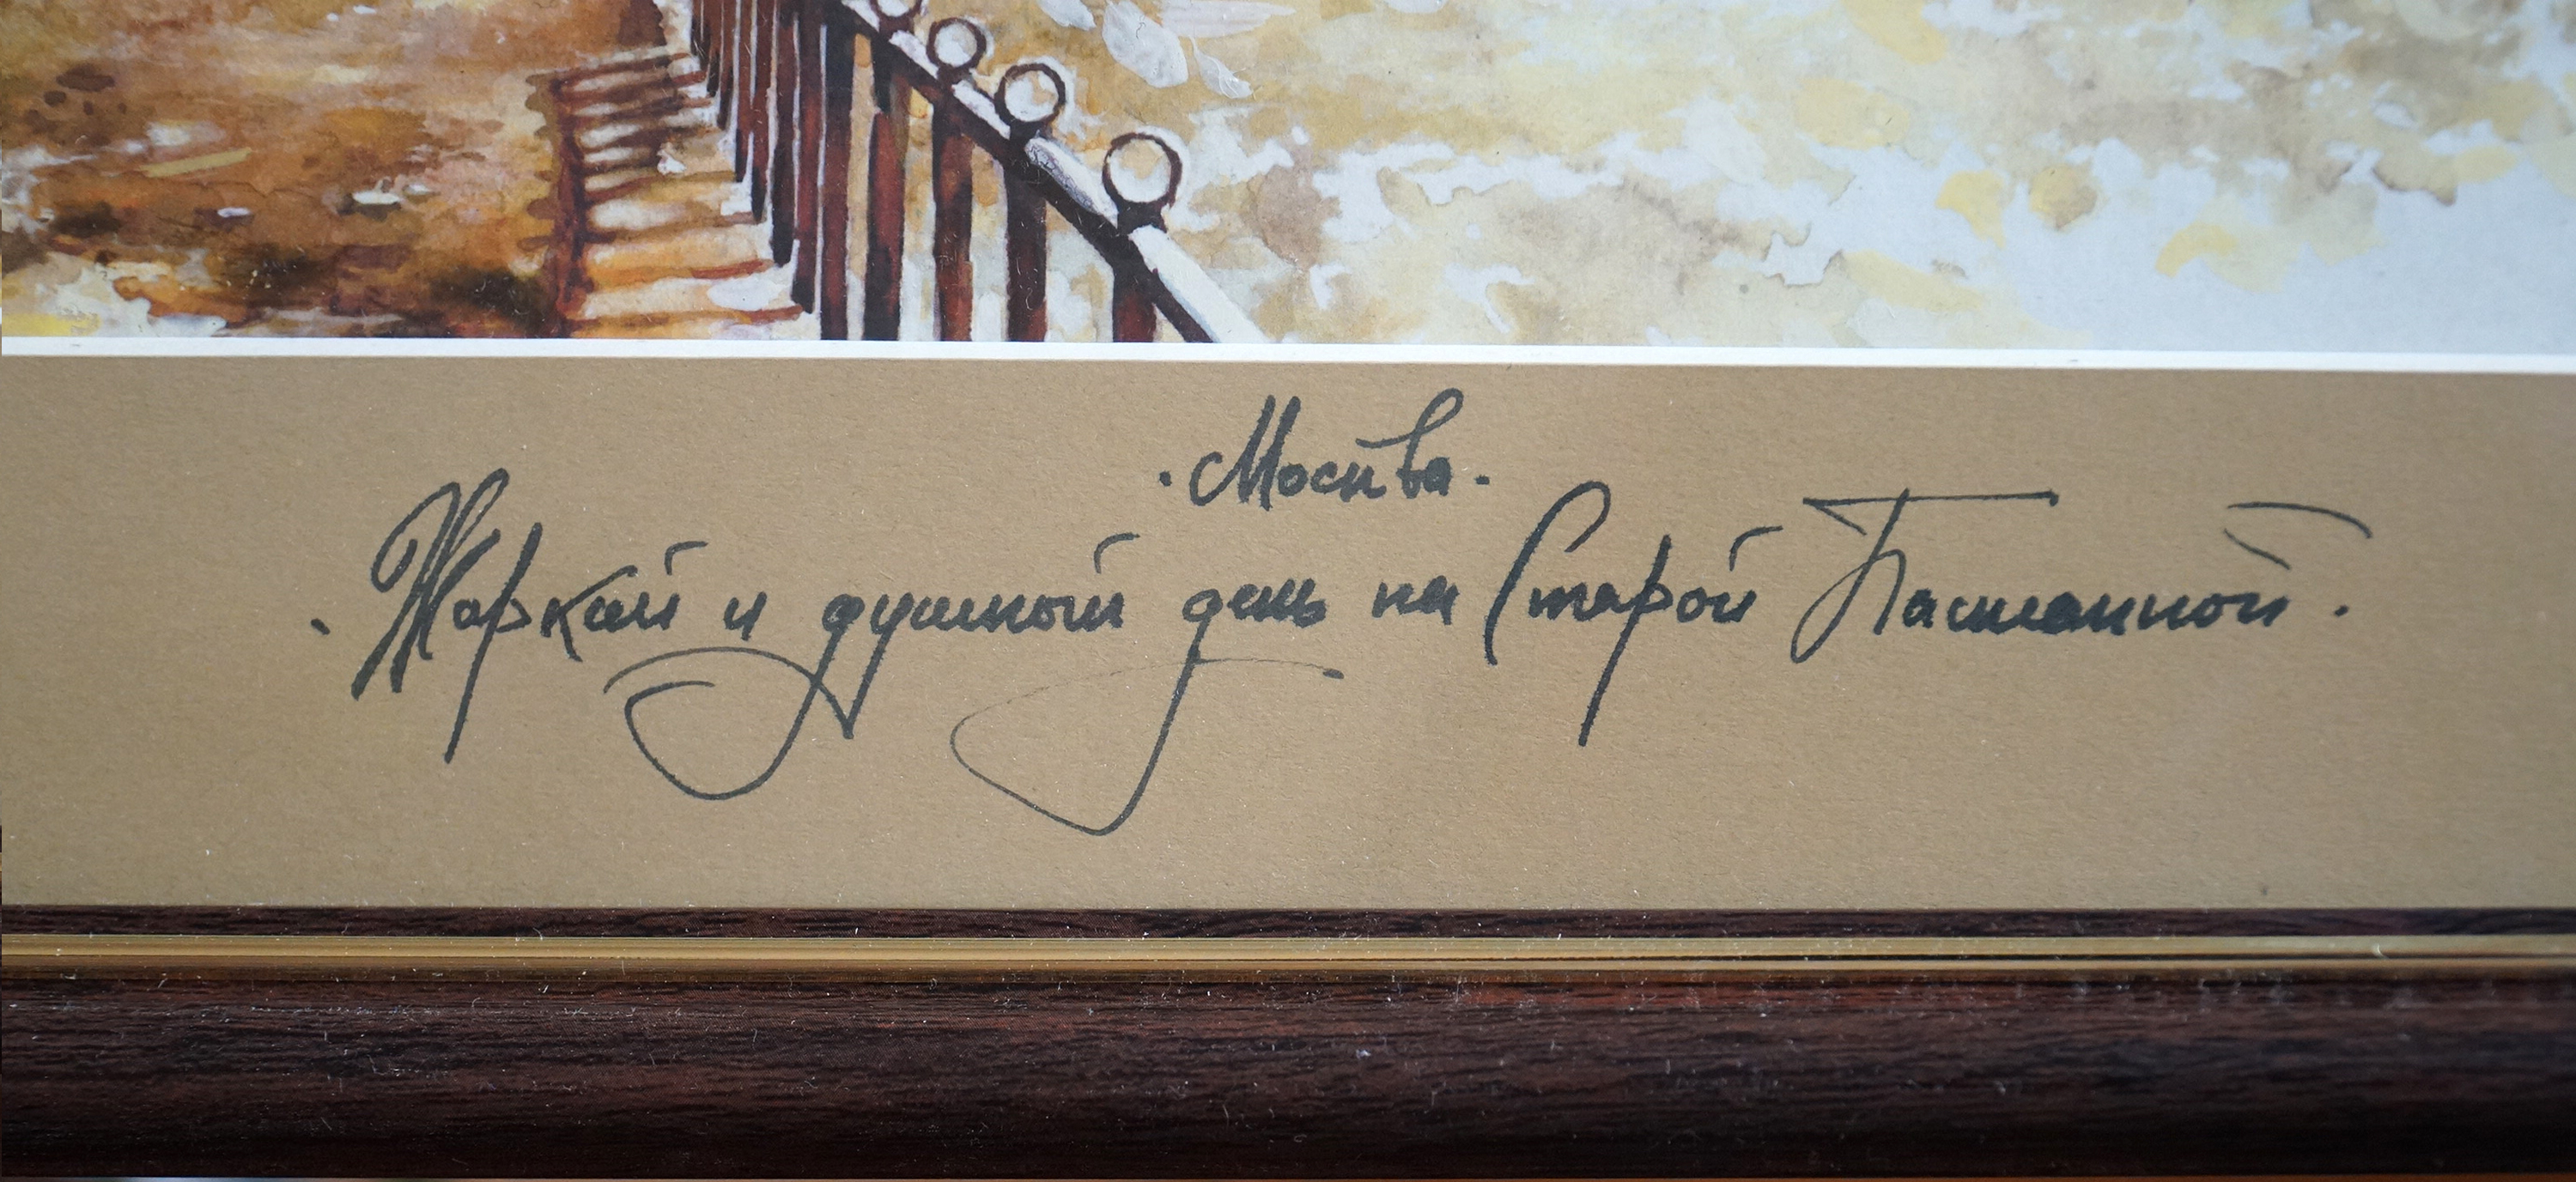 · Москва ·
· Жаркий и душный день на Старой Басманной ·